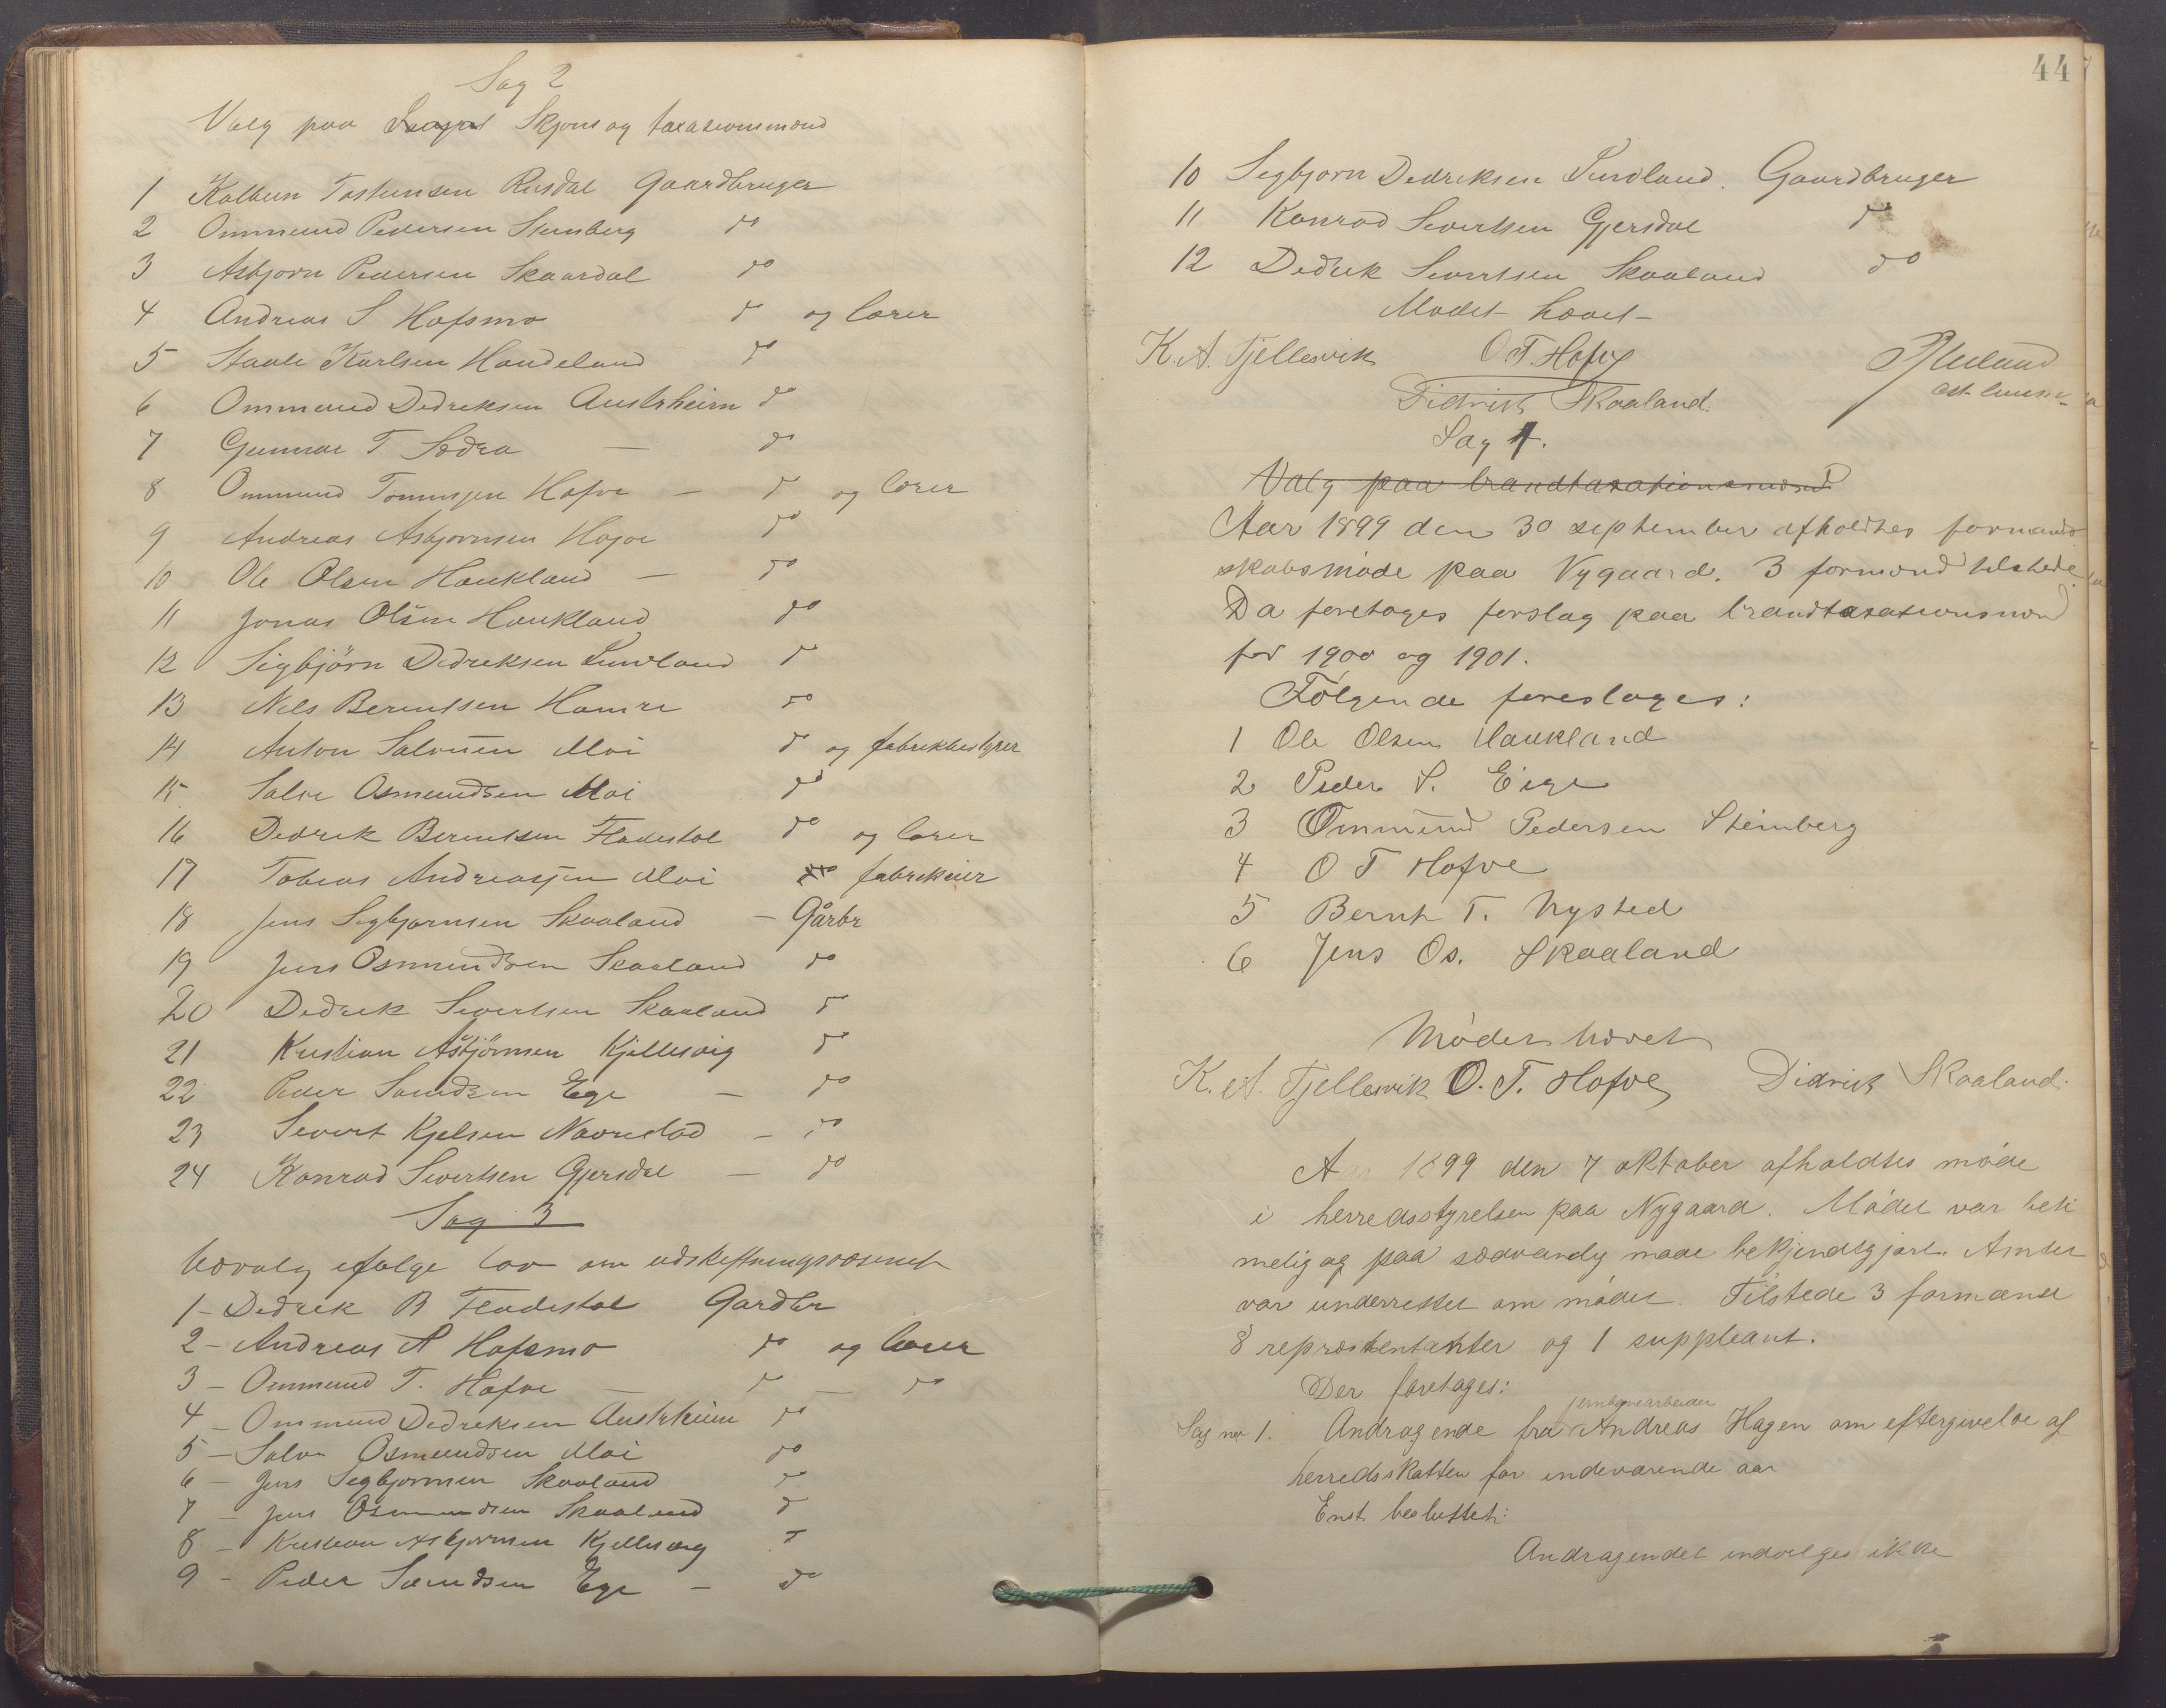 Sag 2
Valg paa Skjøns og taxationsmænd
1 Kolbein Tostensen Rusdal Gaardbruger
2 Ommund Pedersen Stenberg do
3 Asbjørn Pedersen Skaardal do
4 Andreas S Hofsmo do og lærer
5 Staale Karlsen Haudeland do
6 Ommund Dedreksen Austrheim do
7 Gunnar T Sædra — do
8 Ommund Tommesen Hofve — do og lærer
9 Andreas Asbjørnsen Hofve do
10 Ole Olsen Haukland — do
11 Jonas Olsen Haukland do
12 Sigbjörn Dedreksen Surdland do
13 Nels Berentsen Hamre do
14 Anton Salvesen Moi do og fabrikbestyrer
15 Salve Osmundsen Moi do
16 Dedrek Berentsen Fladestøl do og lærer
17 Tobias Andreassen Moi fabrikeier
18 Jens Segbjørnsen Skaaland — Gårbr
19 Jens Osmundsen Skaaland do
20 Dedrek Severtsen Skaaland do
21 Kristian Asbjörnsen Kjellesvig do
22 Peder Samdsen Ege — do
23 Severt Kjelsen Navrestad — do
24 Konrad Severtsen Gjersdal — do
Sag 3
Udvalg ifølge lov om udskiftningsvæsenet
1 - Dedrek B Fladestøl Gardbr
2 - Andreas A Hofsmo do og lærer
3 - Ommund T. Hofve — do — do
4 - Ommund Dedreksen Austrheim do
5 - Salve Osmundsen Moi do
6 - Jens Segbjørnsen Skaaland do
7 - Jens Osmundsen Skaaland do
8 - Kristian Asbjørnsen Kjellesvig do
9 - Peder Samdsen Ege — do
44
10 Segbjørn Dedreksen Surdland. Gaardbruger
11 Konrad Severtsen Gjersdal do
12 Dedrek Severtsen Skaaland do
Mødet hævet
K. A. Tjellesvik O. T. Hofve
Didrick Skaaland.
Sag 1.
Valg paa brandtaxationsmænd
Aar 1899 den 30 september afholdtes formand
skabsmøde paa Nygaard. 3 formænd tilstede.
Da foretoges forslag paa brandtaxationsmænd
for 1900 og 1901.
Følgende foresloges:
1 Ole Olsen Haukland
2 Peder S. Eige
3 Ommund Pedersen Steinberg
4 O T Hofve
5 Bernt T. Nysted
6 Jens Os. Skaaland
Møder hævet
K. A. Tjellesvik O. T. Hofve Didrick Skaaland.
Aar 1899 den 7 oktober afholdtes møde
i herredsstyrelsen paa Nygaard. Mødet var beti
melig og paa sædvanlig maae bekjendtgjort. Amtet
var underrettet om mødet. Tilstede 3 formænd
8 repræsentanter og 1 suppleant.
Der foretoges:
jernbanearbeider
Sag no 1. Andragende fra Andreas Hagen om eftergivelse af
herredsskatten for indeværende aar
Enst. besluttet:
Andragendet indvilges ikke